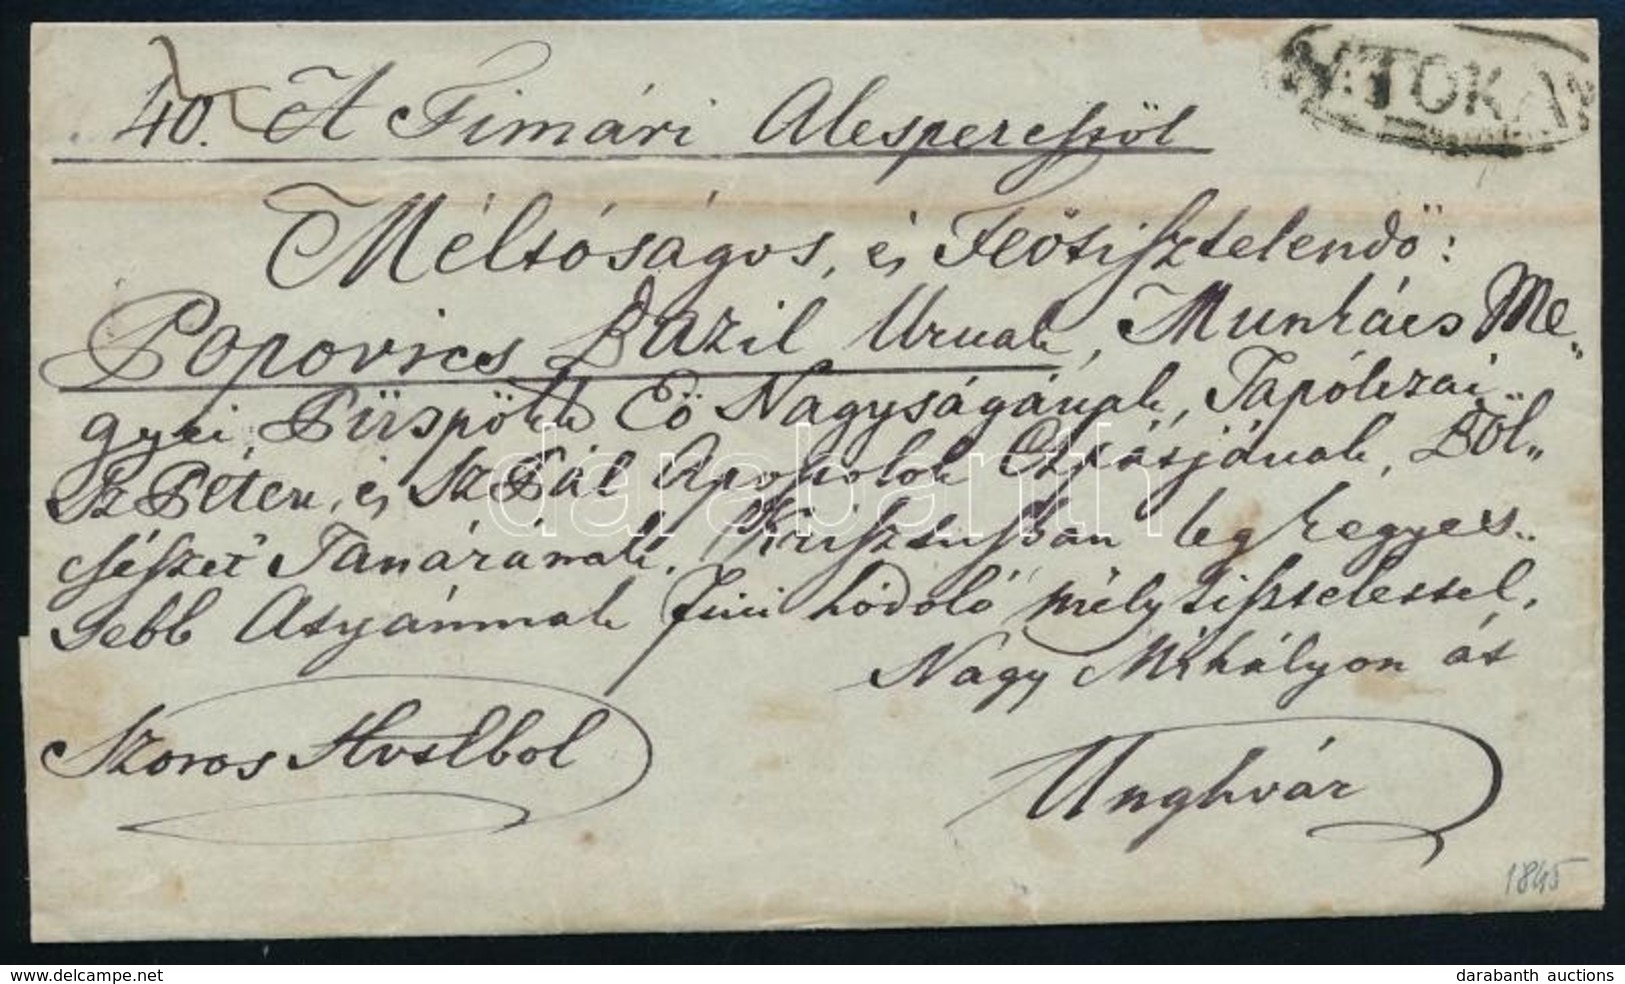 V:TOKAI
40. A Timári Alesperesstöl
Méltóságos, és Feőtisztelendő:
Popovics Bazil Urnak, Munkács Me„
gyei Püspökk Eö Nagyságának, Tapólczai„
Sz Péter, és Sz Pál Apostolok Apátjának, Böl„
csészet Tanárának, Krisztusban leg kegyes„
sebb Atyámnak fiui hódoló mély tisztelettel,
Nagy Mihályon át
Szoros
Unghvár
1845
darabanth
www.delcampe.net
darabanth auctions